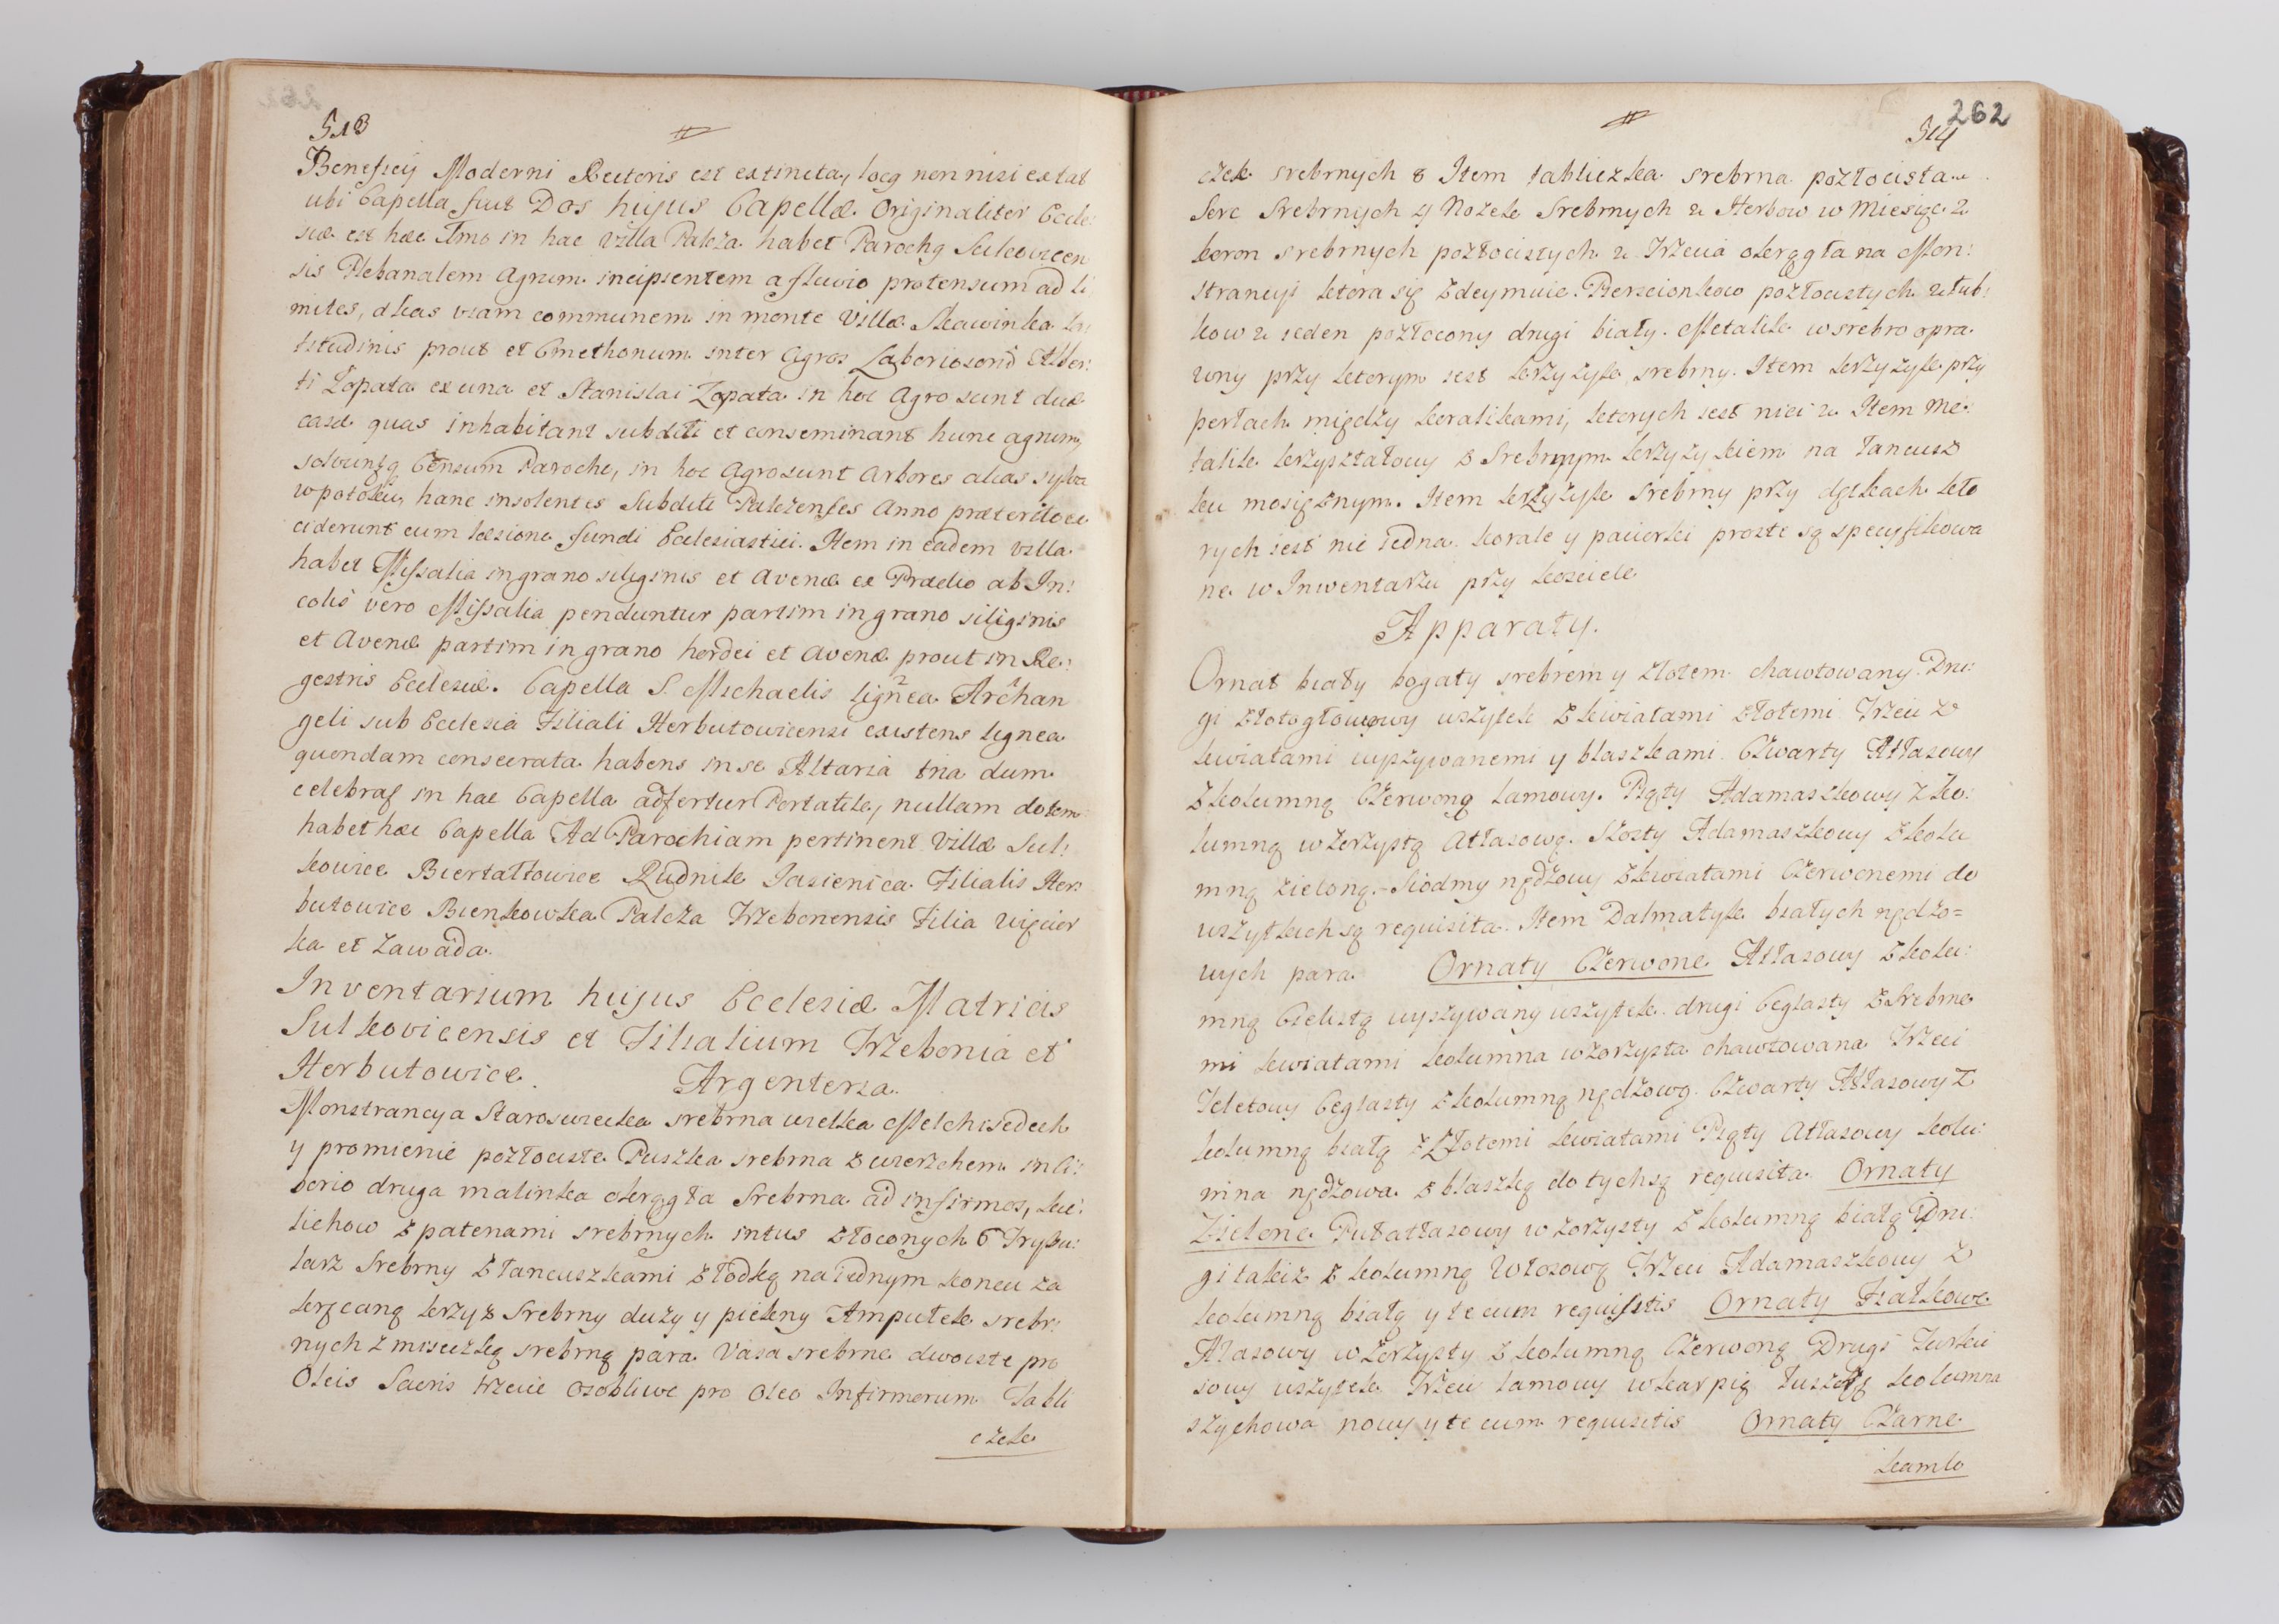 513
Beneficij Moderni Rectoris est extincta, locq non nisi extat
ubi Capella fuit Dos hujus Capellæ Originaliter Eccle:
siæ est hæc Imo in hac villa Palcza habet Parochq Sulkovicen
sis Plebanalem Agrum incipientem a fluvio protensum ad li
mites, dkas viam communem in monte Villæ Skawinka
titudinis prout et Cmethonum inter Agros Laboriosorũ Alber:
ti Łopata ex una et Stanislai Zopata in hoc Agro sunt duæ
casæ quas inhabitant subditi et conseminant hunc agrum,
solvuntq Censum Parocho, in hoc Agro sunt Arbores alias sylva
w potoku, hanc insolentes Subditi Palczenses Anno præterito ex
ciderunt cum læsione fundi Ecclesiastici. Item in eadem villa
habet Missalia in grano siliginis et Avenæ ex Prædio ab In:
colis vero Missalia penduntur partim in grano siliginis
et Avenæ partim in grano hordei et Avenæ prout in Re:
gestris Ecclesiæ. Capella S. Michaelis lignea Archan
geli sub Ecclesia Filiali Herbutowicensi existens lignea
quondam consecrata habens in se Altaria tria dum
celebraf in hac Capella adfertur Portatile, nullam dotem
habet hæc Capella Ad Parochiam pertinent Villæ Sul:
kowice Biertałtowice Rudnik Jasienica Filialis Her:
butowice Bienkowka Palcza Trzebonensis Filia więcior
ka et Zawada.
Inventarium hujus Ecclesiæ Matricis
Sulkovicensis et Filialium Trzebonia et
Herbutowice. Argenteria.
Monstrancya Staroswiecka srebrna wielka Melchisedech
y promienie pozłociste Puszka srebrna z wierzchem in Ci:
borio druga malinka okrągła Srebrna ad infirmos, kie:
lichow z patenami srebrnych intus złoconych 6 Trybu:
larz Srebrny z łancuszkami z łodką na iednym koncu za
kręcaną krzyż Srebrny duży y piękny Ampułek srebr:
nych z miseczką srebrną para Vasa srebrne dwoiste pro
Oleis Sacris trzecie osobliwe pro Oleo Infirmorum Tabli
czek
262
514
czek srebrnych 8 Item tabliczka srebrna pozłocista
Serc Srebrnych 4 Nozek Srebrnych 2 Herbow w Miesiąc 2
koron srebrnych pozłocistych 2 Trzecia okrągła na Mon:
strancyi ktora się zdeymuie. Pierscionkow pozłocistych 2 słub:
kow 2 ieden pozłocony drugi biały. Metalik w srebro opra
wny przy ktorym iest krzyżyk srebrny. Item krzyżyk przy
perłach między koralikami, ktorych iest nici 2 Item Me:
talik krzyształowy z Srebrnym krzyżykiem na łancusz
ku mosiężnym. Item krzyżyk Srebrny przy dętkach kto
rych iest nić iedna korale y paciorki proste są specyfikowa
ne w Inwentarzu przy kosciele
Apparaty.
Ornat biały bogaty srebrem y złotem chawtowany. Dru:
gi złotogłowowy wszytek z kwiatami złotemi Trzeci z
kwiatami wyszywanemi y blaszkami. Czwarty Attłasowy
z kolumną Czerwoną lamowy. Piąty Adamaszkowy z ko:
lumną wzorzystą Atłasową. Szosty Adamaszkowy z kolu
mną zieloną. Siodmy nędzowy z kwiatami Czerwonemi do
wszytkich są requisita. Item Dalmatyk białych nędzo=
wych para. Ornaty Czerwone Attłasowy z kolu:
mną Cielistą wyszywany wszytek drugi Ceglasty z Srebrne
mi kwiatami kolumna wzorzysta chawtowana Trzeci
Teletowy Ceglasty z kolumną nędzową. Czwarty Attłasowy z
kolumną białą z Złotemi kwiatami Piąty Atłasowy kolu:
mna nędzowa z blaszką do tych są requisita. Ornaty
Zielone Pułatłasowy wzorzysty z kolumną białą Dru:
gi takiż z kolumną Włosową Trzeci Adamaszkowy z
kolumną białą y te cum requisitis Ornaty Fiałkowe
Atasowy wzorzysty z kolumną Czerwoną Drugi Turku
sowy wszytek Trzeci lamowy w karpią łuszczę kolumna
szychowa nowy y te cum requisitis Ornaty Czarne
kamlo